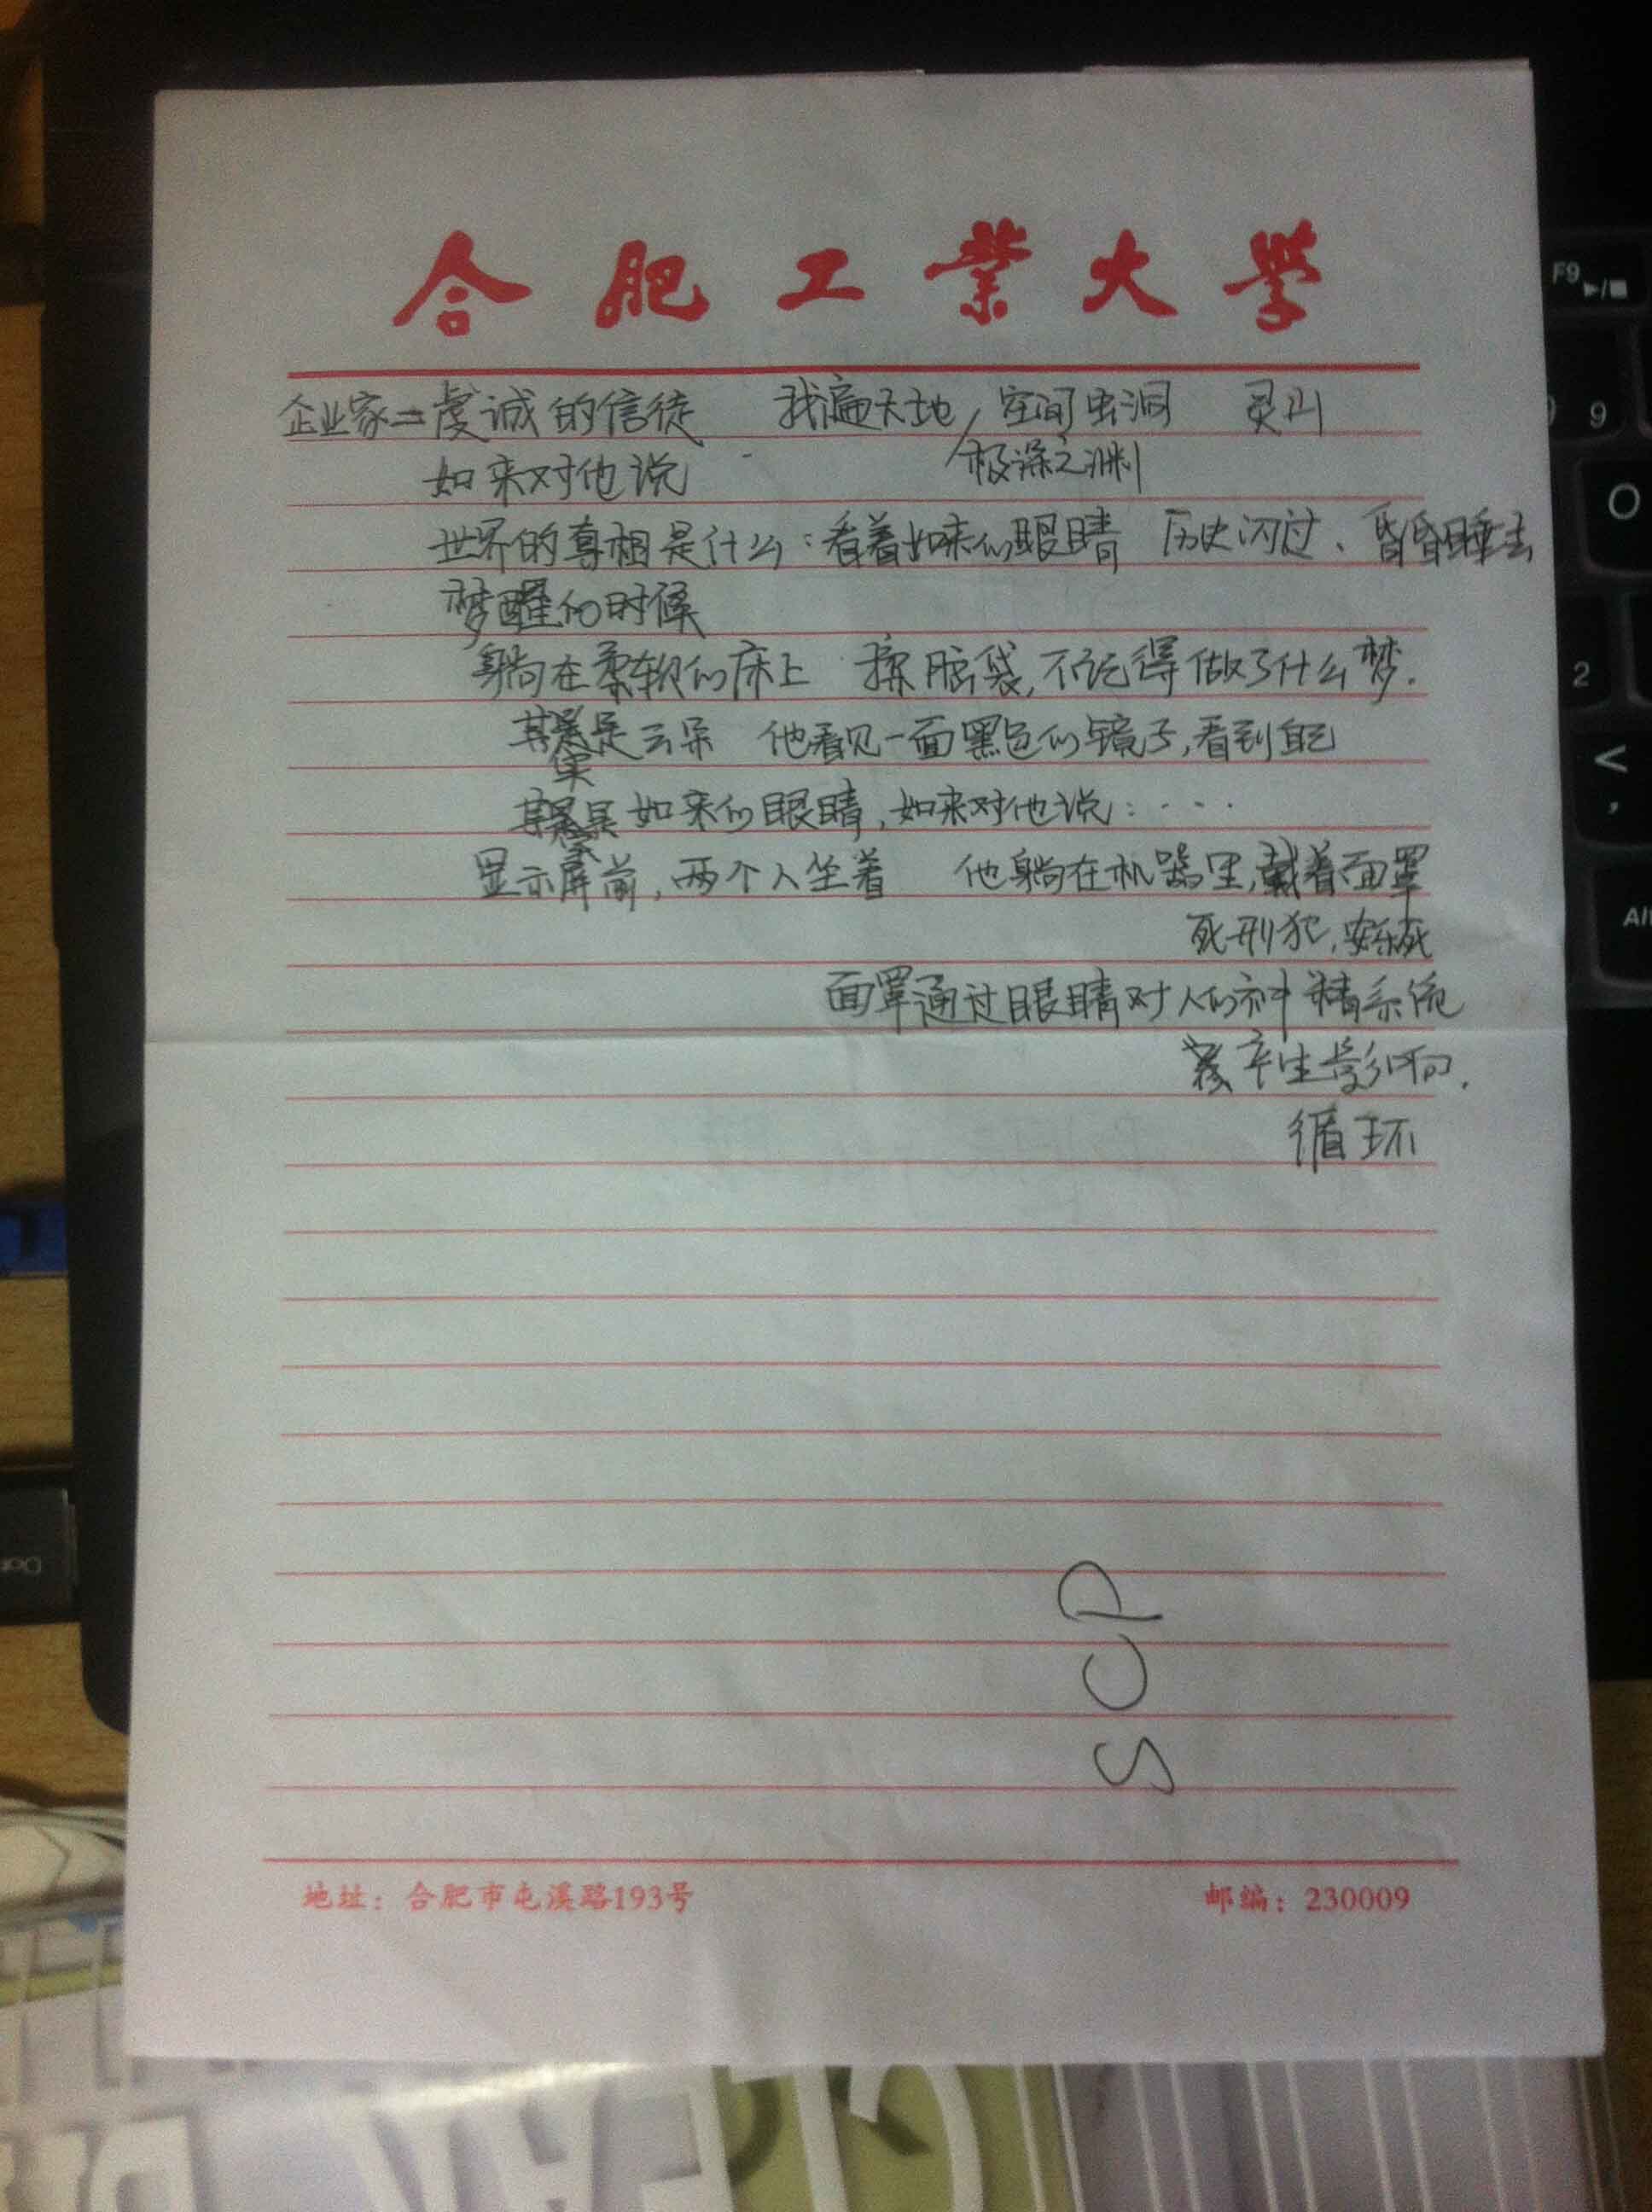 合肥工業大学
企业家=虔诚的信徒 找遍天地/空间虫洞 灵山
如来对他说 极深之渊
世界的真相是什么:看着如来的眼睛 历史闪过、昏昏睡去
梦醒的时候
躺在柔软的床上 揉脑袋,不记得做了什么梦.
其实是云朵 他看见一面黑色的镜子,看到自己
其实是如来的眼睛,如来对他说:····
显示屏前,两个人坐着 他躺在机器里,戴着面罩
死刑犯,安乐死
面罩通过眼睛对人的神精系统
产生影响.
循环
SCP
地址:合肥市屯溪路193号 邮编:230009
F9
9
O
2
<
,
Alt